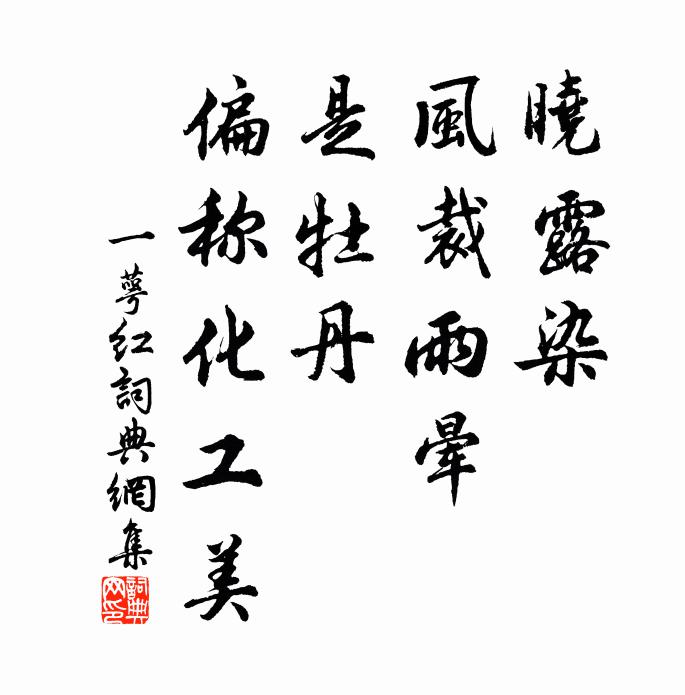 曉露染
風裁雨暈
是牡丹
偏称化工美
一萼红詞典網集
詞典
网印